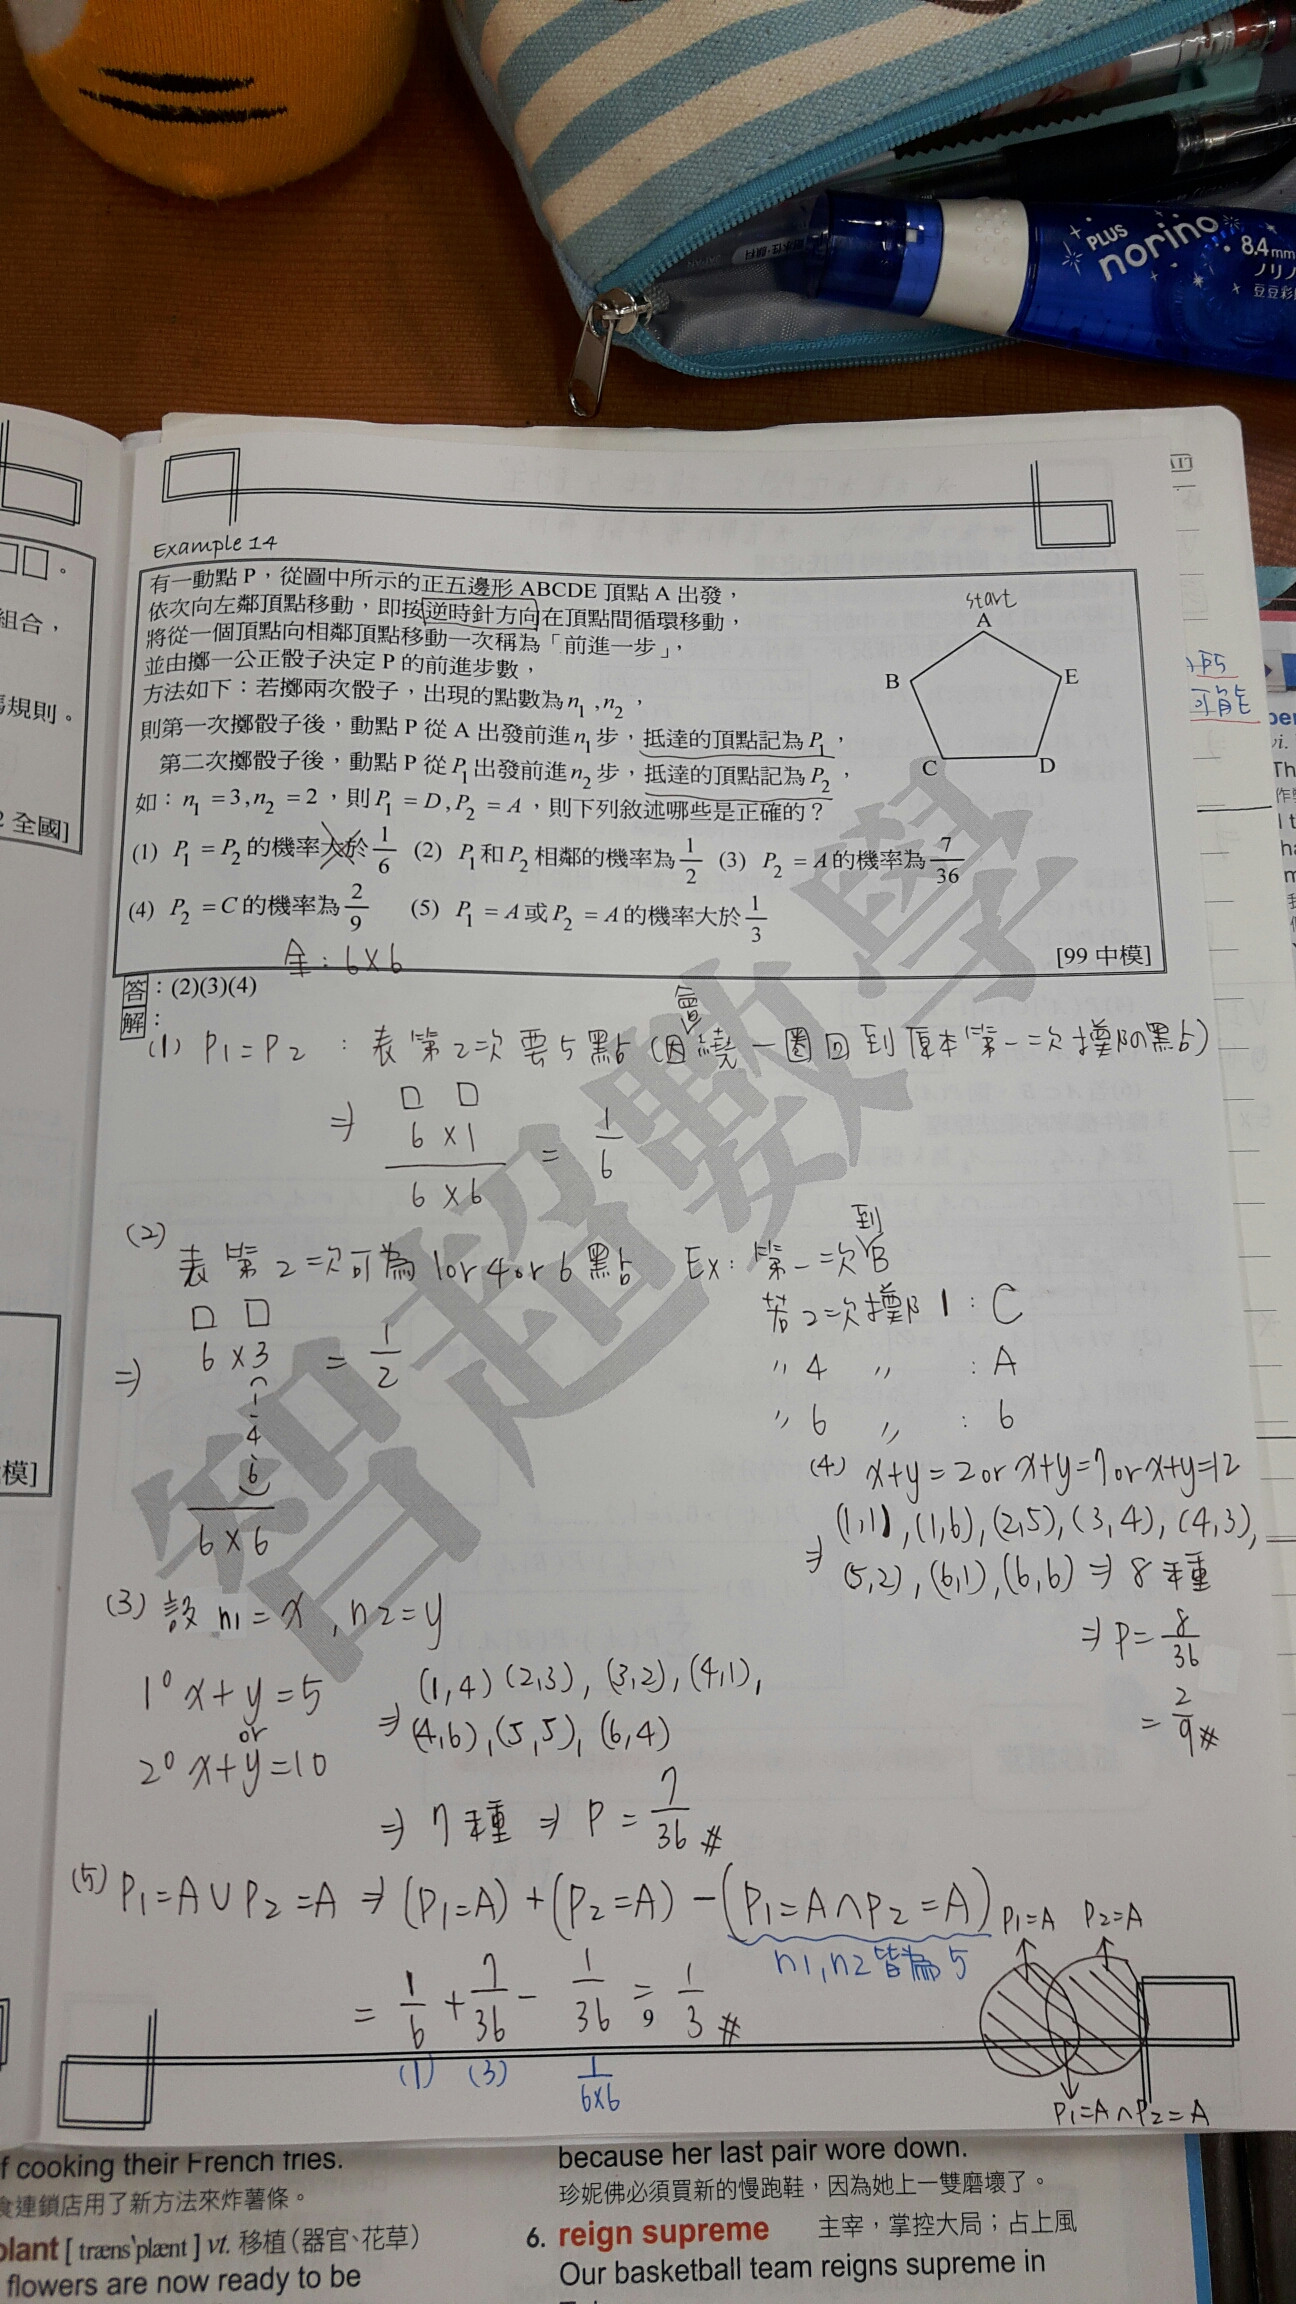 PLUS
norino
8.4mm
ノリノ
Example 14
有一動點 P，從圖中所示的正五邊形 ABCDE 頂點 A 出發，
依次向左鄰頂點移動，即按逆時針方向在頂點間循環移動，
將從一個頂點向相鄰頂點移動一次稱為「前進一步」，
並由擲一公正骰子決定 P 的前進步數，
方法如下：若擲兩次骰子，出現的點數為 n₁ ,n₂，
則第一次擲骰子後，動點 P 從 A 出發前進 n₁ 步，抵達的頂點記為 P₁，
第二次擲骰子後，動點 P 從 P₁ 出發前進 n₂ 步，抵達的頂點記為 P₂，
如：n₁ = 3, n₂ = 2，則 P₁ = D, P₂ = A，則下列敘述哪些是正確的？
start
A
B
E
C
D
(1) P₁ = P₂ 的機率大於 1/6 (2) P₁ 和 P₂ 相鄰的機率為 1/2 (3) P₂ = A 的機率為 7/36
(4) P₂ = C 的機率為 2/9 (5) P₁ = A 或 P₂ = A 的機率大於 1/3
全：6×6
[99 中模]
答：(2)(3)(4)
解：
(1) P1=P2：表第2次要5點(因會繞一圈回到原本第一次擲的點)
⇒ □ □
6×1 / 6×6 = 1/6
(2) 表第2次可為1or4or6點 Ex：第一次到B
若2次擲1：C
〃4〃：A
〃6〃：6
□ □
⇒ 6×3 / 6×6 = 1/2
(1、4、6)
(3) 設 n1=x, n2=y
1° x+y=5
or
2° x+y=10
⇒ (1,4) (2,3), (3,2), (4,1),
(4,6), (5,5), (6,4)
⇒ 7種 ⇒ P = 7/36 #
(4) x+y=2 or x+y=7 or x+y=12
⇒ (1,1), (1,6), (2,5), (3,4), (4,3),
(5,2), (6,1), (6,6) ⇒ 8種
⇒ P = 8/36
= 2/9 #
(5) P1=A∪P2=A ⇒ (P1=A)+(P2=A)-(P1=A∩P2=A)
n1,n2皆為5
= 1/6 + 7/36 - 1/36 = 1/3 #
(1) (3) 1/6×6
9
P1=A P2=A
P1=A∩P2=A
智超數學
組合，
規則。
2 全國]
模]
可能
f cooking their French fries.
食連鎖店用了新方法來炸薯條。
plant [ træns`plænt ] vt. 移植（器官、花草）
flowers are now ready to be
because her last pair wore down.
珍妮佛必須買新的慢跑鞋，因為她上一雙磨壞了。
6. reign supreme 主宰，掌控大局；占上風
Our basketball team reigns supreme in